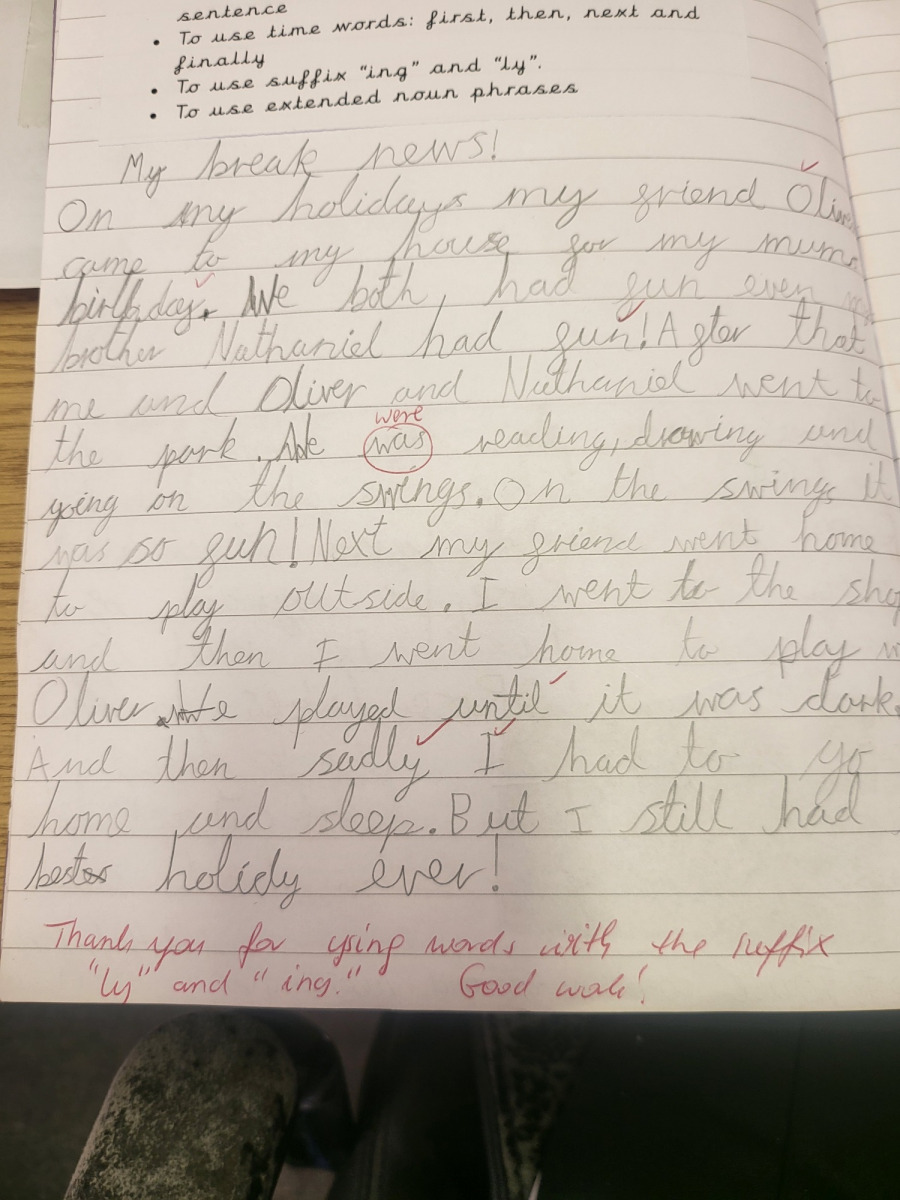 sentence
• To use time words: first, then, next and
finally
• To use suffix "ing" and "ly".
• To use extended noun phrases
My break news!
On my holidays my friend
came to my house for my mums
birthday. We both, had fun even
brother Nathaniel had fun! After that
me and Oliver and Nathaniel went to
were
the park. We was reading, drawing and
going on the swings. On the swings it
was so fun! Next my friend went home
to play outside. I went to the
and then I went home to play
Oliver. We played until it was dark.
And then sadly I had to go
home and sleep. But I still had
holidy ever!
Thank you for using words with the suffix
"ly" and "ing." Good work!